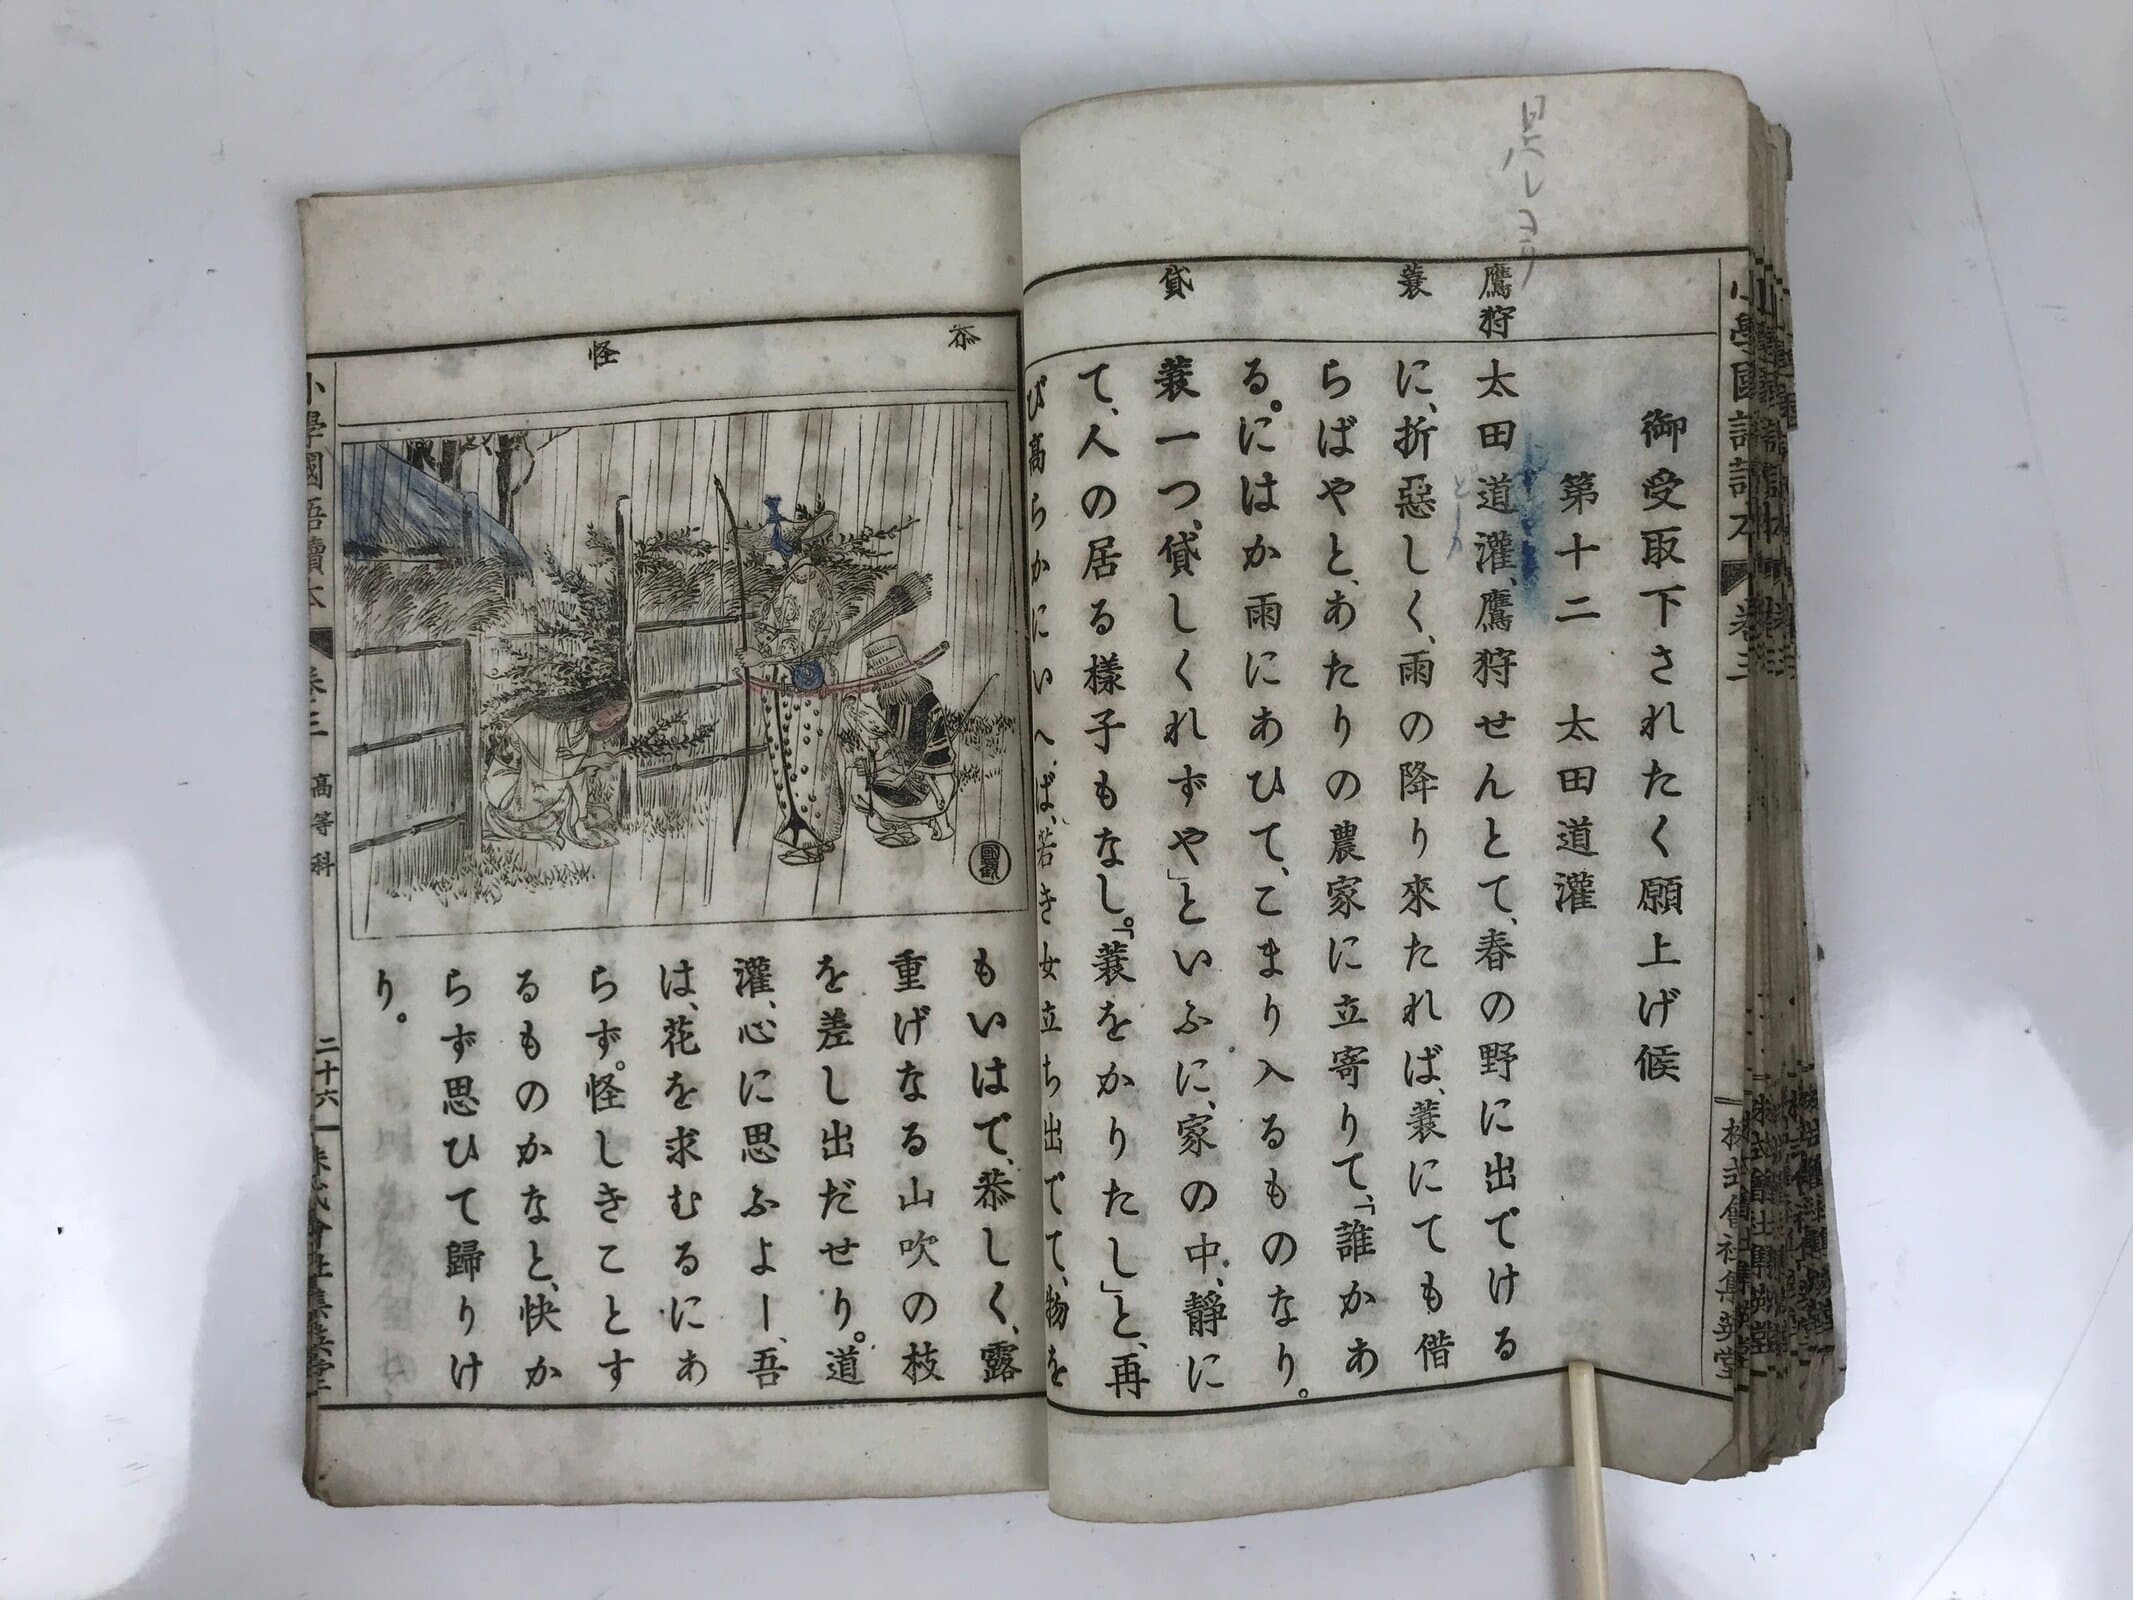 鷹狩
蓑
貸
御受取下されたく願上げ候
第十二　太田道灌
太田道灌、鷹狩せんとて、春の野に出でける
に、折惡しく、雨の降り來たれば、蓑にても借
らばやと、あたりの農家に立寄りて、「誰かあ
る。にはか雨にあひて、こまり入るものなり。
蓑一つ、貸しくれずや」といふに、家の中、靜に
て、人の居る樣子もなし。「蓑をかりたし」と、再
び高らかにいへば、若き女立ち出でて、物を
小學國語讀本
卷三
株式會社集英堂
恭
怪
もいはで、恭しく、露
重げなる山吹の枝
を差し出だせり。道
灌、心に思ふよー、吾
は、花を求むるにあ
らず。怪しきことす
るものかなと、快か
らず思ひて歸りけ
り。
國觀
小學國語讀本
卷三
高等科
二十六
株式會社集英堂